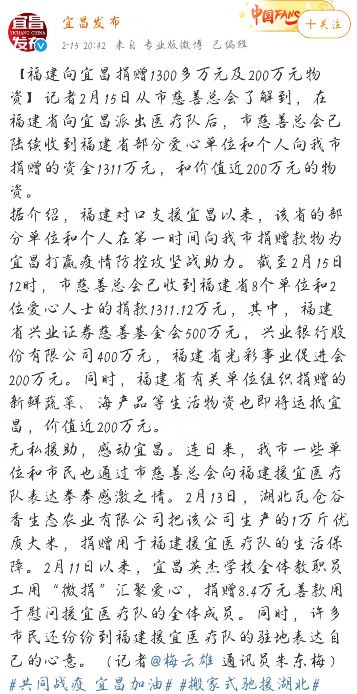 宜昌发布
宜昌
YICHANG CHINA
发布
中国FANS
+关注
2-15 20:42 来自 专业版微博 已编辑
【福建向宜昌捐赠1300多万元及200万元物
资】记者2月15日从市慈善总会了解到，在
福建省向宜昌派出医疗队后，市慈善总会已
陆续收到福建省部分爱心单位和个人向我市
捐赠的资金1311万元，和价值近200万元的物
资。
据介绍，福建对口支援宜昌以来，该省的部
分单位和个人在第一时间向我市捐赠款物为
宜昌打赢疫情防控攻坚战助力。截至2月15日
12时，市慈善总会已收到福建省8个单位和2
位爱心人士的捐款1311.12万元，其中，福建
省兴业证券慈善基金会500万元，兴业银行股
份有限公司400万元，福建省光彩事业促进会
200万元。同时，福建省有关单位组织捐赠的
新鲜蔬菜、海产品等生活物资也即将运抵宜
昌，价值近200万元。
无私援助，感动宜昌。连日来，我市一些单
位和市民也通过市慈善总会向福建援宜医疗
队表达拳拳感激之情。2月13日，湖北瓦仓谷
香生态农业有限公司把该公司生产的1万斤优
质大米，捐赠用于福建援宜医疗队的生活保
障。2月11日以来，宜昌英杰学校全体教职员
工用“微捐”汇聚爱心，捐赠8.4万元善款用
于慰问援宜医疗队的全体成员。同时，许多
市民还纷纷到福建援宜医疗队的驻地表达自
己的心意。（记者@梅云雄 通讯员朱东梅）
#共同战疫 宜昌加油# #搬家式驰援湖北#